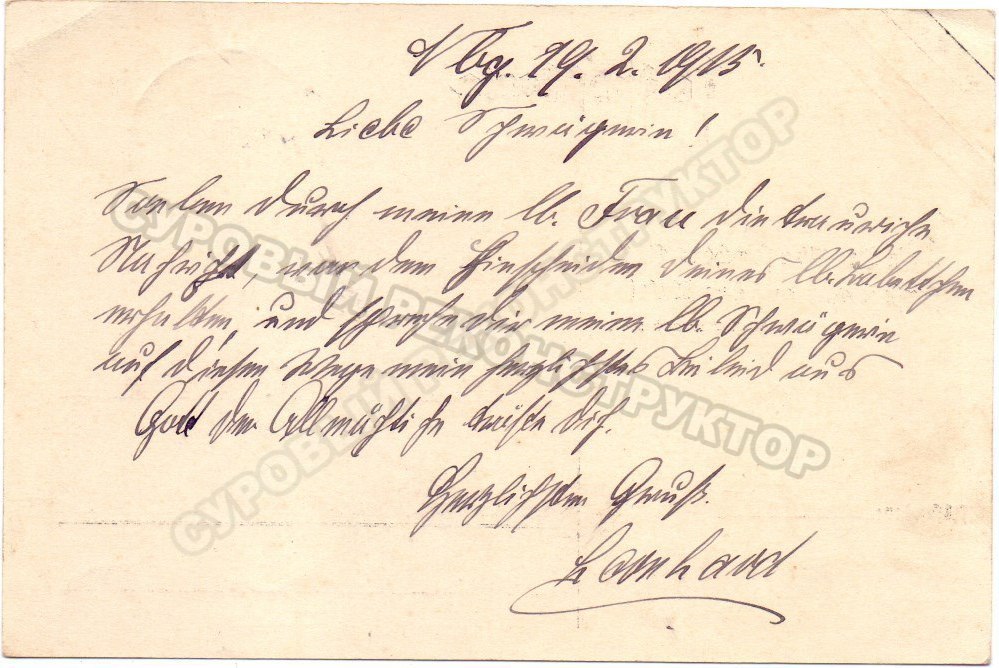 Nbg. 19. 2. 1915.
Liebe Schwägerin!
Soeben durch meine lb. Frau die traurige
Nachricht von dem Hinscheiden deines lb. Babettchen
erhalten, und spreche dir meine lb. Schwägerin
auf diesen Wege mein herzlichstes Beileid aus
Gott der Allmächtiche tröste dich.
Herzlichsten Gruß.
Leonhard
СУРОВЫЙ РЕКОНСТРУКТОР
СУРОВЫЙ РЕКОНСТРУКТОР